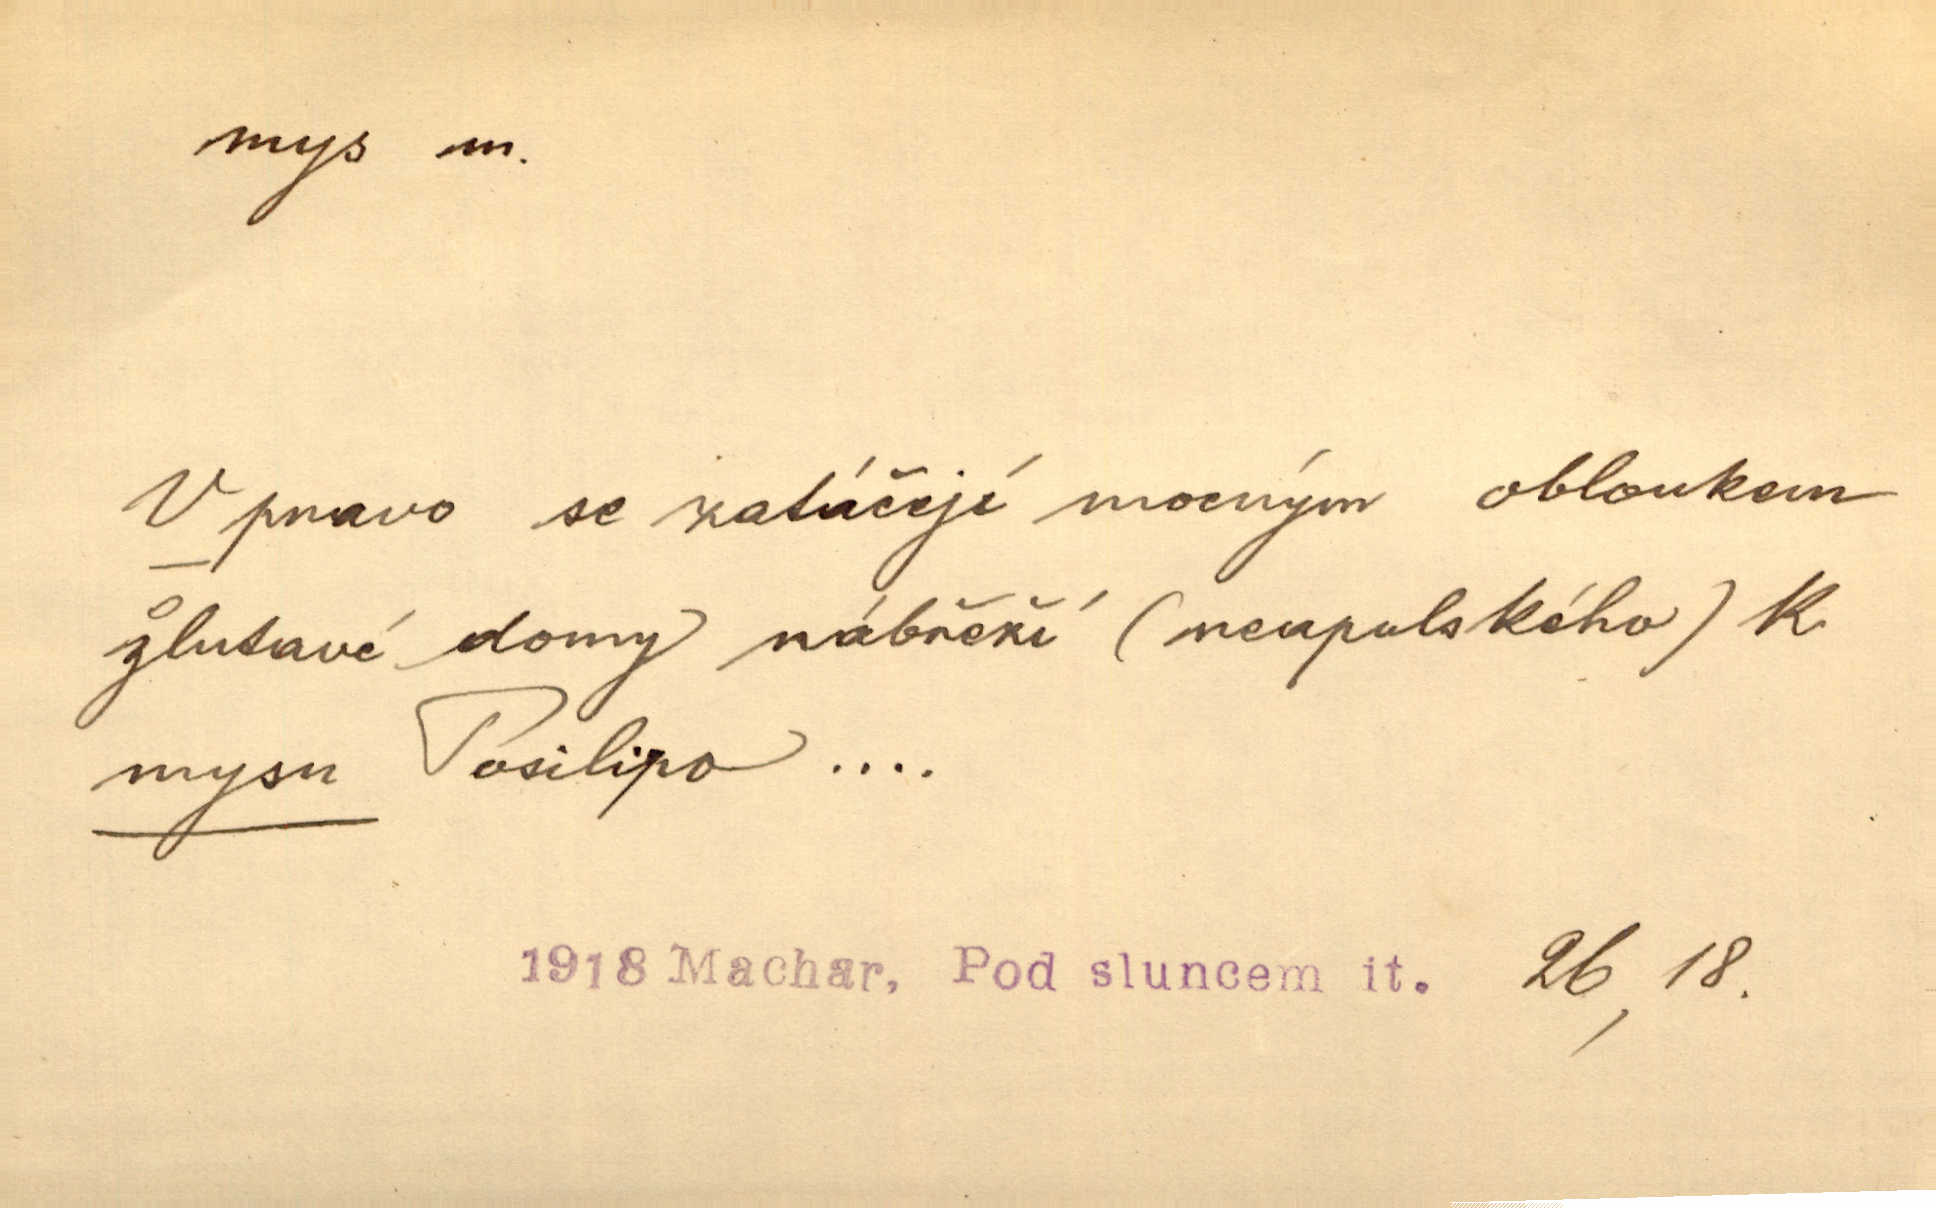 mys m.
V pravo se zatáčejí mocným obloukem
žlutavé domy nábřeží (neapolského) k
mysu Posilipo ....
1918 Machar, Pod sluncem it. 26, 18.